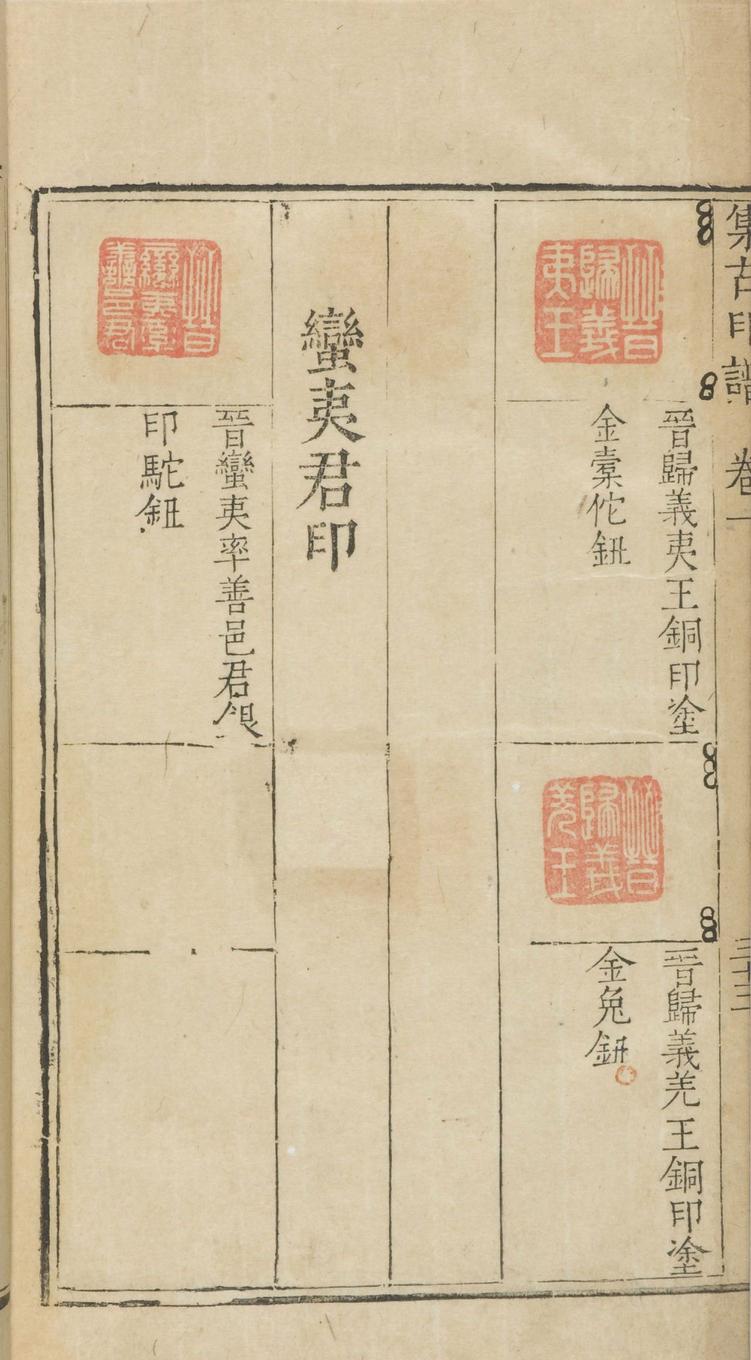 集古印譜 卷一
三十三
晉歸義夷王
晉歸義夷王銅印塗
金橐佗鈕
晉歸義羌王
晉歸義羌王銅印塗
金兔鈕
蠻夷君印
晉蠻夷率善邑君
晉蠻夷率善邑君銀
印駝鈕